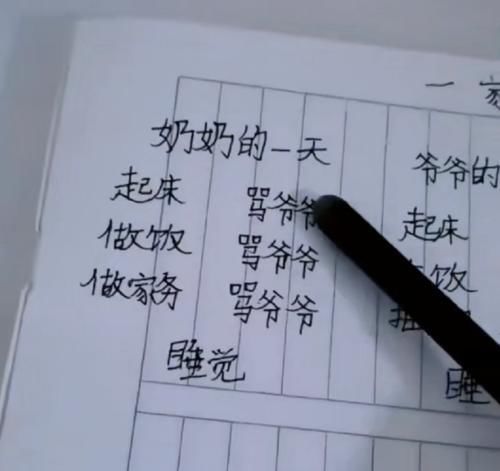 一
奶奶的一天
起床 骂爷爷
做饭 骂爷爷
做家务 骂爷爷
睡觉
爷爷的
起床
饭
睡